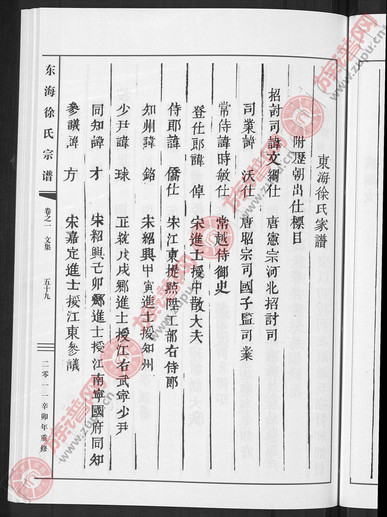 東海徐氏家譜
附歷朝出仕標目
招討司諱文綱仕 唐憲宗河北招討司
司業諱 沃仕 唐昭宗司國子監司業
常侍諱時敏仕 常越侍御史
登仕郎諱 倬 宋進士授中散大夫
侍郎諱 僑仕 宋江東提點陞工部右侍郎
知州諱 銘 宋紹興甲寅進士授知州
少尹諱 球 正統戊戌鄉進士授江右武寧少尹
同知諱 才 宋紹興己卯鄉進士授江南寧國府同知
參議諱 方 宋嘉定進士授江東參議
东海徐氏宗谱
卷之一 文集
五十九
二零一一辛卯年重修
族谱网
www.zupu.cn